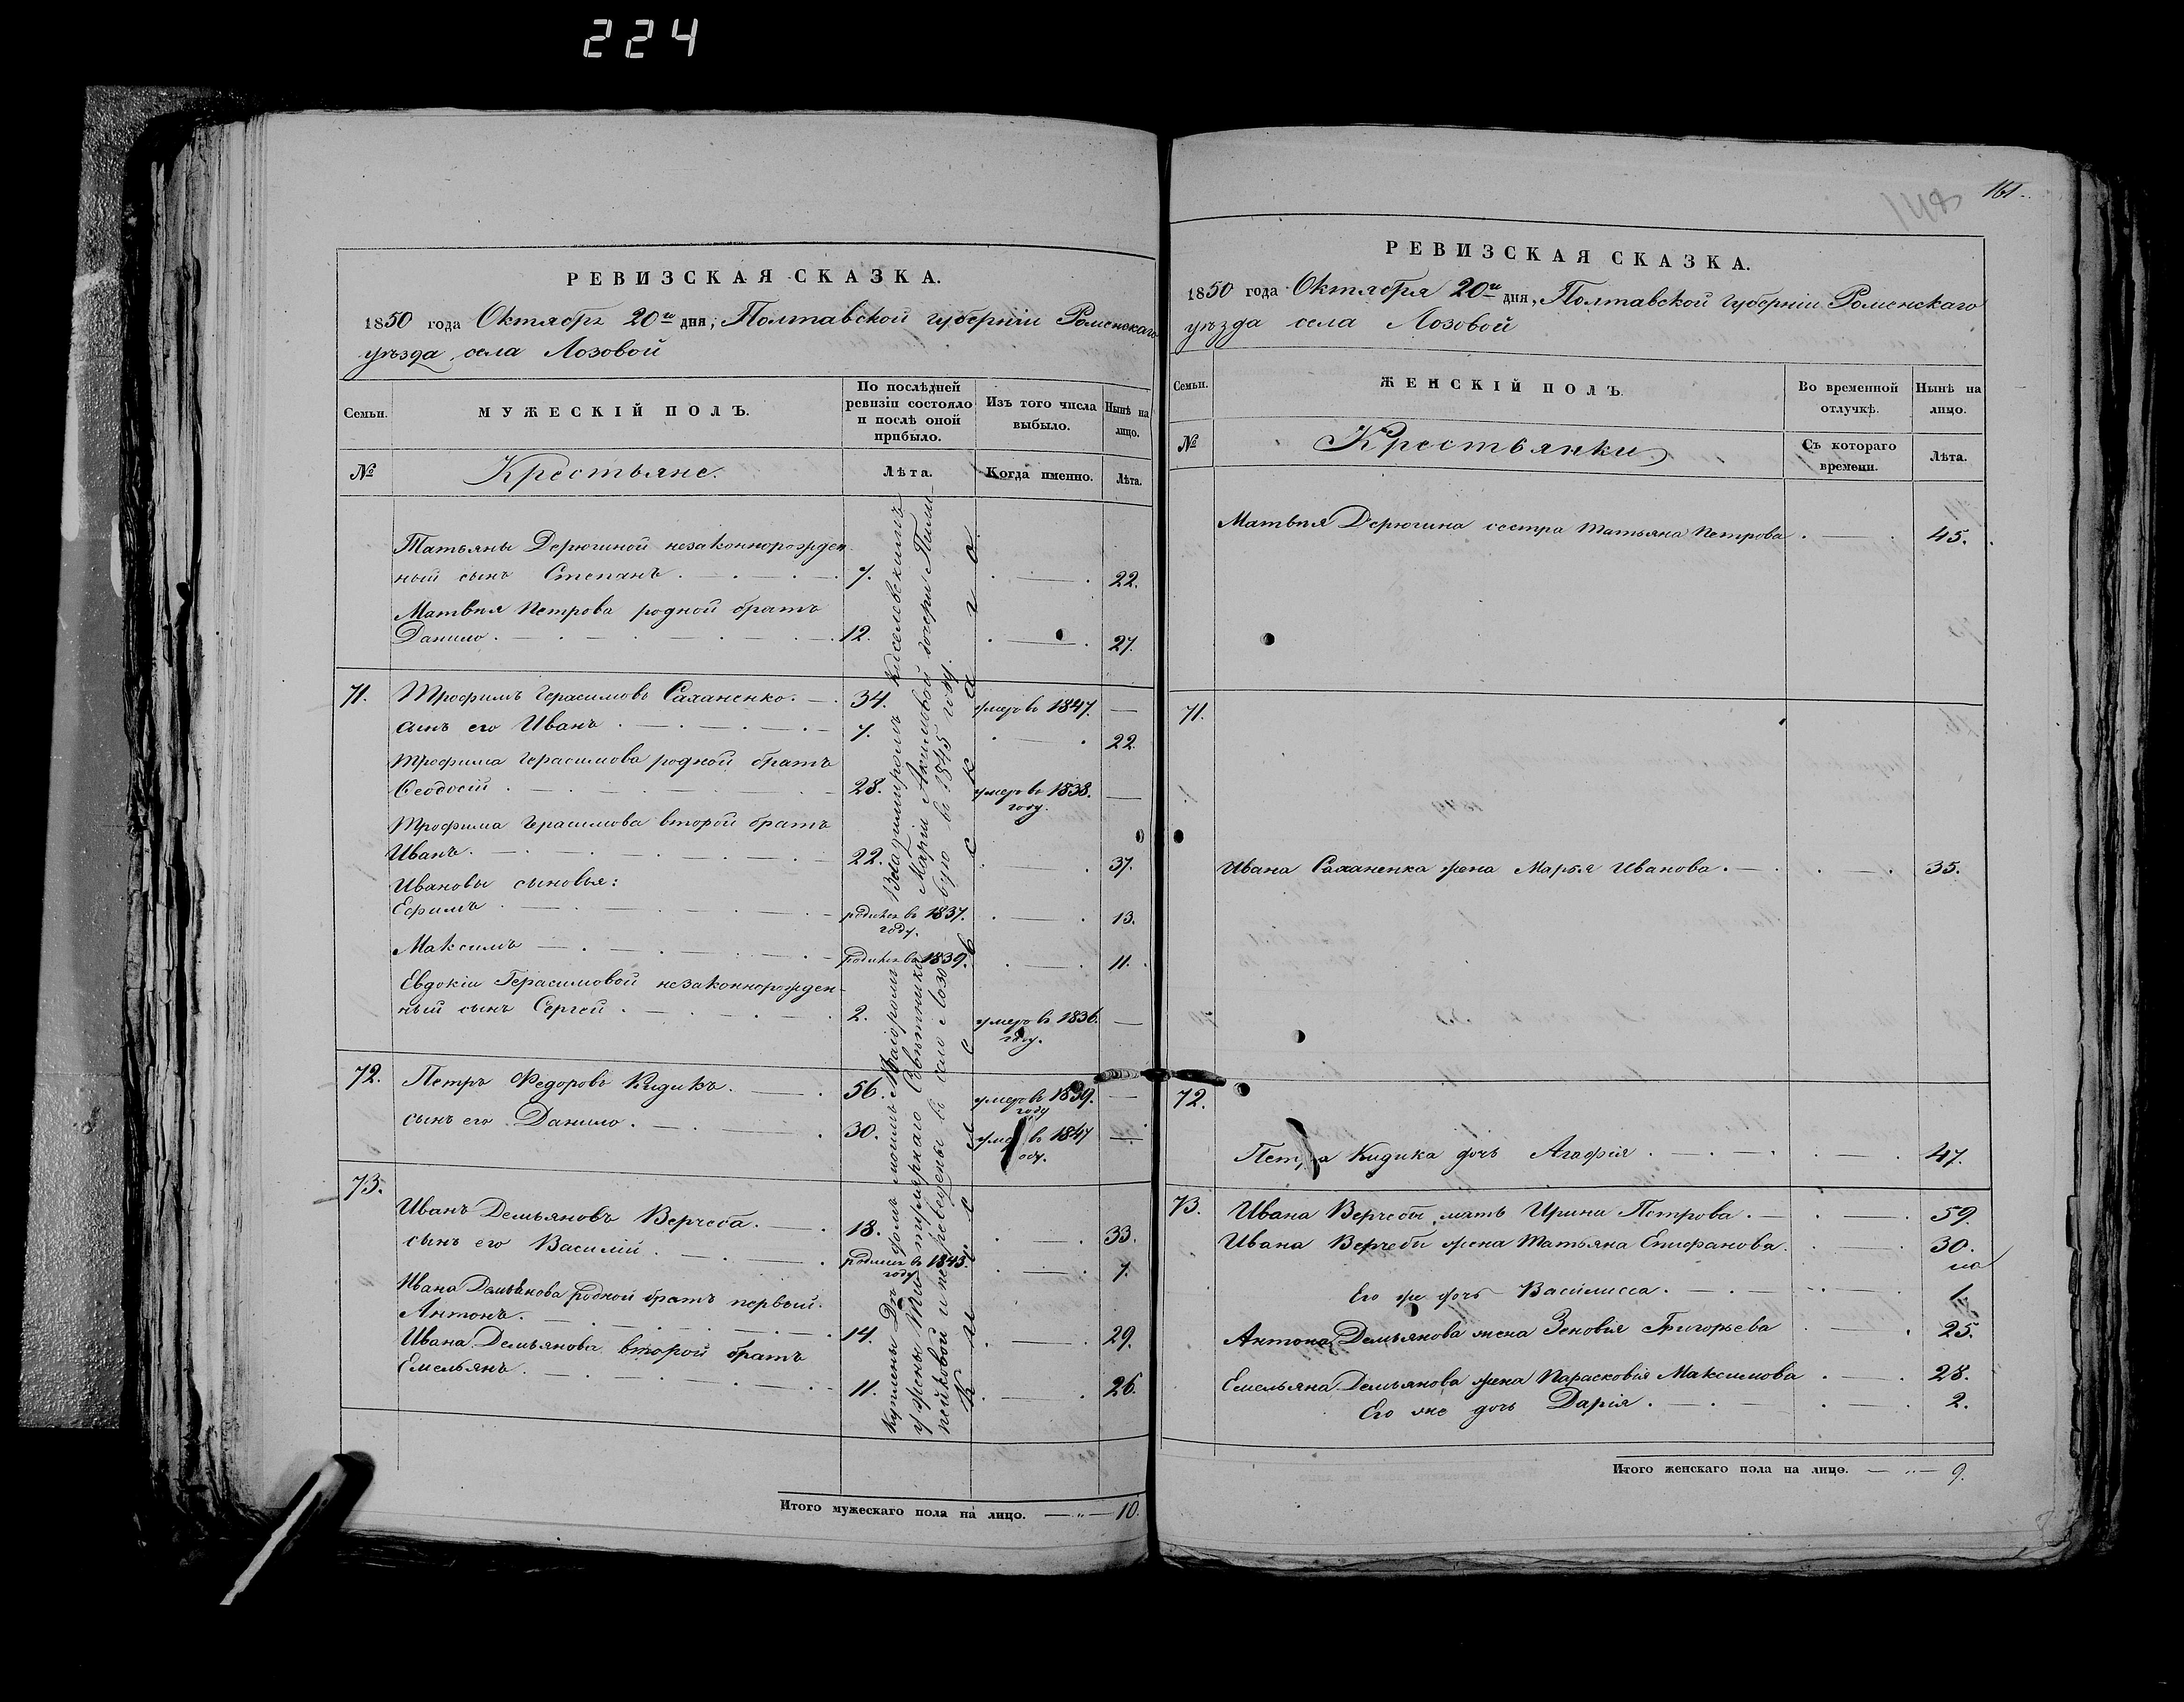 224
РЕВИЗСКАЯ СКАЗКА.
1850 года Октября 20го дня, Полтавской губернiи Роменскаго
уѣзда села Лозовой
Семьи.
МУЖЕСКIЙ ПОЛЪ.
По послѣдней
ревизiи состояло
и послѣ оной
прибыло.
Изъ того числа
выбыло.
Нынѣ на
лицо.
№
Крестьяне.
Лѣта.
Когда именно.
Лѣта.
Татьяны Дерюгиной незаконнорожден-
ный сынъ Степанъ . 7. 22.
Матвѣя Петрова родной братъ
Данило . 12. 27.
71. Трофимъ Герасимовъ Саханенко. 34. умеръ въ 1847. —
сынъ его Иванъ . 7. 22.
Трофима Герасимова родной братъ
Ѳеодосiй . 28. умеръ въ 1838. —
году.
Трофима Герасимова второй братъ
Иванъ . 22. 37.
Ивановы сыновья:
Ефимъ . родился въ 1837. 13.
году.
Максимъ . родился въ 1839. 11.
Евдокiи Герасимовой незаконнорожден-
ный сынъ Сергей . 2. умеръ въ 1836. —
году.
72. Петръ Федоровъ Кидикъ . 56. умеръ въ 1839. —
году
сынъ его Данило . 30. въ 1847 —
73.
Иванъ Демьяновъ Верчеба . 18. 33.
сынъ его Василiй . родился въ 1843. 7.
году
Ивана Демьянова родной братъ первый.
Антонъ . 14. 29.
Ивана Демьянова второй братъ
Емельянъ . 11. 26.
Куплены Маiоромъ Владимiромъ Киселевскимъ
у жены Титулярнаго Совѣтника Марiи Акимовой дочери
и переведены въ село Лозовую въ 1845 году.
Киселевскаго
Итого мужескаго пола на лицо. — „ — 10.
161.
РЕВИЗСКАЯ СКАЗКА.
1850 года Октября 20го дня, Полтавской губернiи Роменскаго
уѣзда села Лозовой
Семьи.
ЖЕНСКIЙ ПОЛЪ
Во временной
отлучкѣ.
Нынѣ на
лицо.
№
Крестьянки
Съ котораго
времени.
Лѣта.
Матвѣя Дерюгина сестра Татьяна Петрова . 45.
71.
Ивана Саханенка жена Марья Иванова . 35.
72.
Петра Кидика дочь Агафiя . 47.
73. Ивана Верчебы мать Ирина Петрова . 59.
Ивана Верчебы жена Татьяна Епифанова . 30.
Его же дочь Василисса . 1.
Антона Демьянова жена Зеновiя Григорьева 25.
Емельяна Демьянова жена Парасковiя Максимова . 28.
Его же дочь Дарiя . 2.
Итого женскаго пола на лицо. — „ — 9.